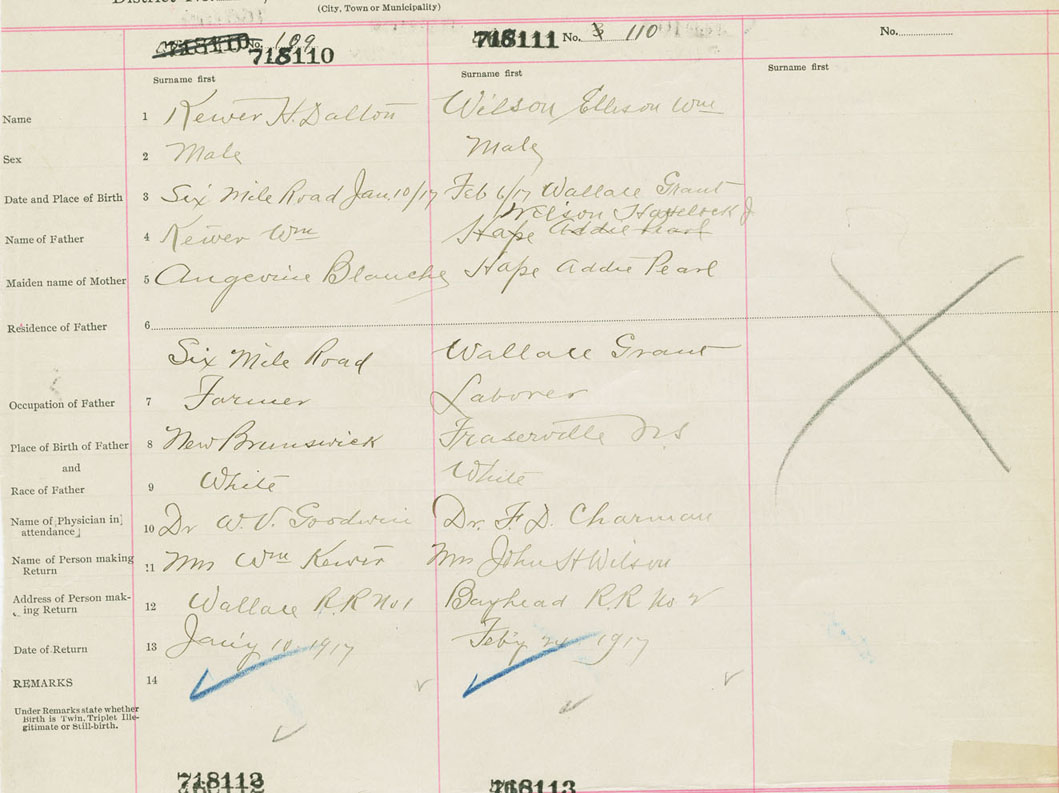 (City, Town or Municipality)
No. 109
718110
718111 No. 110
No.
Surname first
Surname first
Surname first
Name 1 Kewer H. Dalton Wilson Ellison Wm
Sex 2 Male Male
Date and Place of Birth 3 Six Mile Road Jan. 10/17 Feb 6/17 Wallace Grant
Wilson Havelock J
Name of Father 4 Kewer Wm Hape Addie Pearl
Maiden name of Mother 5 Angevine Blanche Hape Addie Pearl
Residence of Father 6
Six Mile Road Wallace Grant
Occupation of Father 7 Farmer Laborer
Place of Birth of Father 8 New Brunswick Fraserville N.S
and
Race of Father 9 White White
Name of Physician in attendance 10 Dr W. V. Goodwin Dr. F. D. Charman
Name of Person making Return 11 Mrs Wm Kewer Mrs John H Wilson
Address of Person making Return 12 Wallace R.R No 1 Bayhead R.R No 2
Date of Return 13 Jan'y 10 1917 Feb'y 24 1917
REMARKS 14
Under Remarks state whether
Birth is Twin, Triplet Ille-
gitimate or Still-birth.
718112
718113